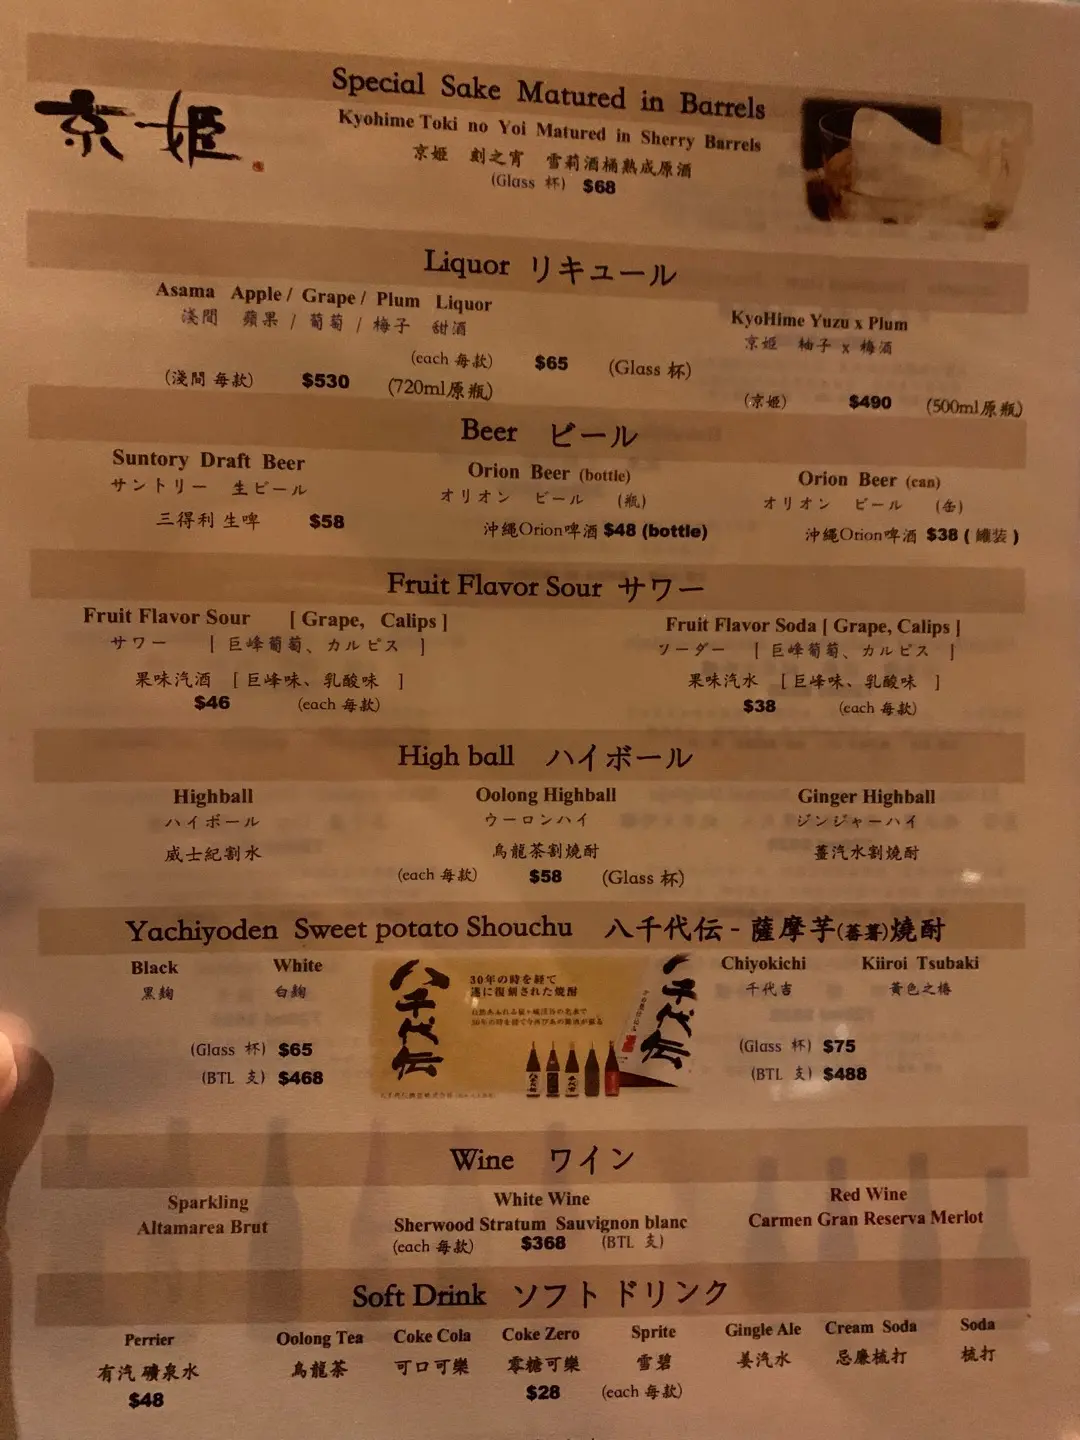 京姫
Special Sake Matured in Barrels
Kyohime Toki no Yoi Matured in Sherry Barrels
京姬 刻之宵 雪莉酒桶熟成原酒
(Glass 杯) $68
Liquor リキュール
Asama Apple / Grape / Plum Liquor
淺間 蘋果 / 葡萄 / 梅子 甜酒
KyoHime Yuzu x Plum
京姬 柚子 x 梅酒
(each 每款) $65 (Glass 杯)
(淺間 每款) $530 (720ml原瓶)
(京姬) $490 (500ml原瓶)
Beer ビール
Suntory Draft Beer
サントリー 生ビール
三得利 生啤 $58
Orion Beer (bottle)
オリオン ビール (瓶)
沖縄Orion啤酒 $48 (bottle)
Orion Beer (can)
オリオン ビール (缶)
沖縄Orion啤酒 $38 ( 罐装 )
Fruit Flavor Sour サワー
Fruit Flavor Sour [ Grape, Calips ]
サワー [ 巨峰葡萄、カルピス ]
果味汽酒 [ 巨峰味、乳酸味 ]
$46 (each 每款)
Fruit Flavor Soda [ Grape, Calips ]
ソーダー [ 巨峰葡萄、カルピス ]
果味汽水 [ 巨峰味、乳酸味 ]
$38 (each 每款)
High ball ハイボール
Highball
ハイボール
威士紀割水
Oolong Highball
ウーロンハイ
烏龍茶割燒酎
Ginger Highball
ジンジャーハイ
薑汽水割燒酎
(each 每款) $58 (Glass 杯)
Yachiyoden Sweet potato Shouchu 八千代伝 - 薩摩芋(蕃薯)燒酎
Black
黑麹
White
白麹
(Glass 杯) $65
(BTL 支) $468
八千代伝
30年の時を経て
遂に復刻された焼酎
八千代伝
Chiyokichi
千代吉
Kiiroi Tsubaki
黃色之椿
(Glass 杯) $75
(BTL 支) $488
Wine ワイン
Sparkling
Altamarea Brut
White Wine
Sherwood Stratum Sauvignon blanc
Red Wine
Carmen Gran Reserva Merlot
(each 每款) $368 (BTL 支)
Soft Drink ソフト ドリンク
Perrier Oolong Tea Coke Cola Coke Zero Sprite Gingle Ale Cream Soda Soda
有汽 礦泉水 烏龍茶 可口可樂 零糖可樂 雪碧 姜汽水 忌廉梳打 梳打
$48 $28 (each 每款)